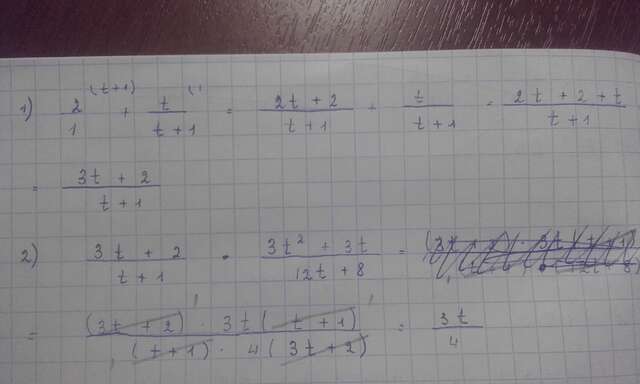 1) 2/1 (t+1) + t/(t+1) (1 = (2t + 2)/(t+1) + t/(t+1) = (2t + 2 + t)/(t+1)
= (3t + 2)/(t+1)
2) (3t + 2)/(t+1) · (3t² + 3t)/(12t + 8) =
= ((3t + 2) · 3t(t+1))/((t+1) · 4(3t+2)) = 3t/4